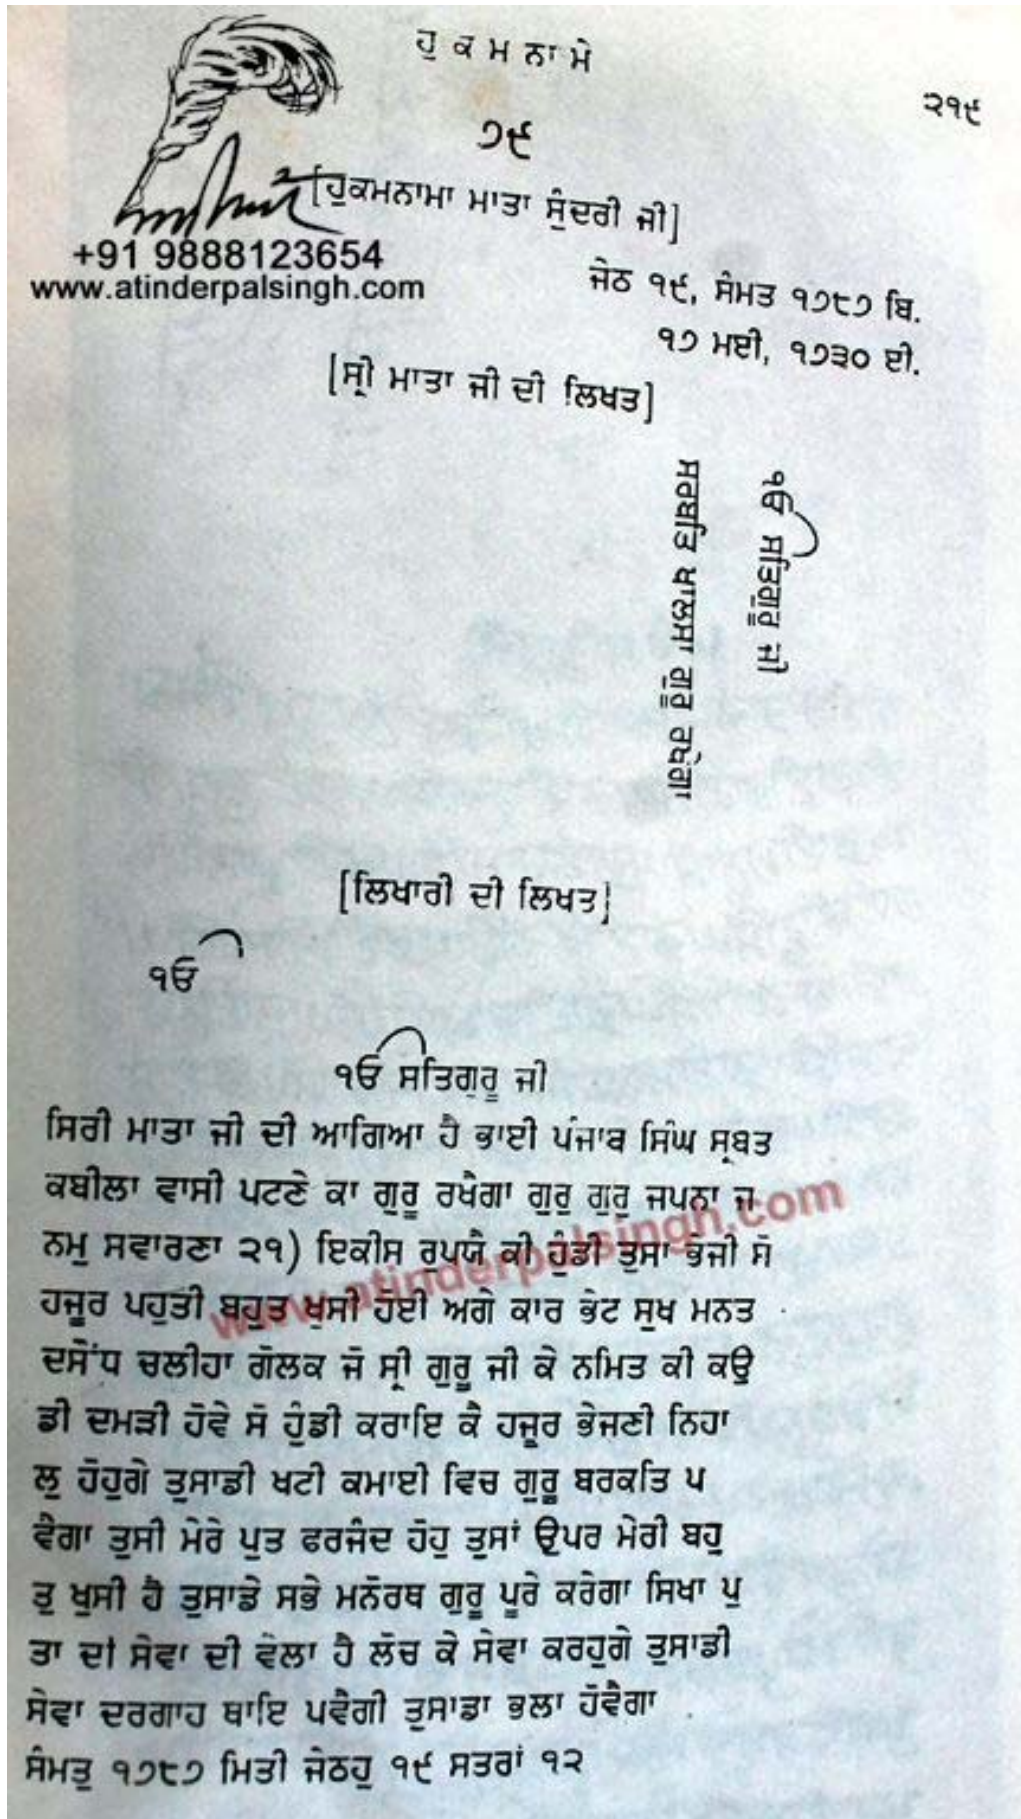 ਹੁਕਮਨਾਮੇ
੨੧੯
੭੯
[ਹੁਕਮਨਾਮਾ ਮਾਤਾ ਸੁੰਦਰੀ ਜੀ]
+91 9888123654
www.atinderpalsingh.com
ਜੇਠ ੧੯, ਸੰਮਤ ੧੭੮੭ ਬਿ.
੧੭ ਮਈ, ੧੭੩੦ ਈ.
[ਸ੍ਰੀ ਮਾਤਾ ਜੀ ਦੀ ਲਿਖਤ]
ੴ ਸਤਿਗੁਰੂ ਜੀ
ਸਰਬਤਿ ਖਾਲਸਾ ਗੁਰੂ ਰਖੇਗਾ
[ਲਿਖਾਰੀ ਦੀ ਲਿਖਤ]
ੴ
ੴ ਸਤਿਗੁਰੂ ਜੀ
ਸਿਰੀ ਮਾਤਾ ਜੀ ਦੀ ਆਗਿਆ ਹੈ ਭਾਈ ਪੰਜਾਬ ਸਿੰਘ ਸ੍ਰਬਤ
ਕਬੀਲਾ ਵਾਸੀ ਪਟਣੇ ਕਾ ਗੁਰੂ ਰਖੈਗਾ ਗੁਰੁ ਗੁਰੁ ਜਪਨਾ ਜ
ਨਮੁ ਸਵਾਰਣਾ ੨੧) ਇਕੀਸ ਰੁਪਯੈ ਕੀ ਹੁੰਡੀ ਤੁਸਾ ਭੇਜੀ ਸੋ
ਹਜੂਰ ਪਹੁਤੀ ਬਹੁਤ ਖੁਸੀ ਹੋਈ ਅਗੇ ਕਾਰ ਭੇਟ ਸੁਖ ਮਨਤ
ਦਸੌਂਧ ਚਲੀਹਾ ਗੋਲਕ ਜੋ ਸ੍ਰੀ ਗੁਰੂ ਜੀ ਕੇ ਨਮਿਤ ਕੀ ਕਉ
ਡੀ ਦਮੜੀ ਹੋਵੇ ਸੋ ਹੁੰਡੀ ਕਰਾਇ ਕੈ ਹਜੂਰ ਭੇਜਣੀ ਨਿਹਾ
ਲੁ ਹੋਹੁਗੇ ਤੁਸਾਡੀ ਖਟੀ ਕਮਾਈ ਵਿਚ ਗੁਰੂ ਬਰਕਤਿ ਪ
ਵੈਗਾ ਤੁਸੀ ਮੇਰੇ ਪੁਤ ਫਰਜੰਦ ਹੋਹੁ ਤੁਸਾਂ ਉਪਰ ਮੇਰੀ ਬਹੁ
ਤੁ ਖੁਸੀ ਹੈ ਤੁਸਾਡੇ ਸਭੇ ਮਨੋਰਥ ਗੁਰੂ ਪੂਰੇ ਕਰੇਗਾ ਸਿਖਾ ਪੁ
ਤਾ ਦੀ ਸੇਵਾ ਦੀ ਵੇਲਾ ਹੈ ਲੋਚ ਕੇ ਸੇਵਾ ਕਰਹੁਗੇ ਤੁਸਾਡੀ
ਸੇਵਾ ਦਰਗਾਹ ਥਾਇ ਪਵੈਗੀ ਤੁਸਾਡਾ ਭਲਾ ਹੋਵੈਗਾ
ਸੰਮਤੁ ੧੭੮੭ ਮਿਤੀ ਜੇਠਹੁ ੧੯ ਸਤਰਾਂ ੧੨
www.atinderpalsingh.com